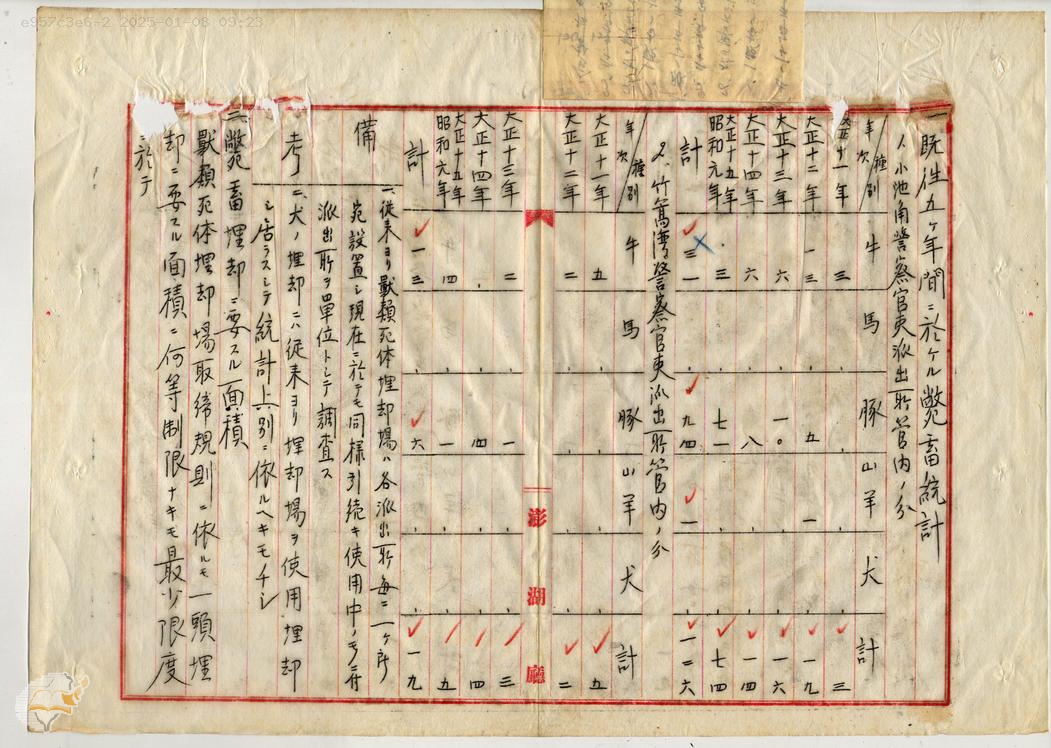 e957c3e6-2 2025-01-08 09:23
一、既往九ヶ年間ニ於ケル斃畜統計
1、小池角警察官吏派出所管内ノ分
年次 種別 牛 馬 豚 山羊 犬 計
大正十一年 三 三
大正十二年 一三 五 一 一九
大正十三年 六 一〇 一六
大正十四年 六 八 一四
大正十五年 昭和元年 三 七一 七四
計 三一 九四 一 一二六
2、竹篙湾警察官吏派出所管内ノ分
年次 種別 牛 馬 豚 山羊 犬 計
大正十一年 五 五
大正十二年 二 二
澎湖廳
大正十三年 二 一 三
大正十四年 四 四
大正十五年 昭和元年 四 一 五
計 一三 六 一九
備考
一、従来ヨリ獣類死体埋却場ハ各派出所毎ニ一ヶ所
宛設置シ現在ニ於テモ同様引続キ使用中ノモノニ付
派出所ヲ單位トシテ調査ス
二、犬ノ埋却ニハ従来ヨリ埋却場ヲ使用埋却
シ居ラスシテ統計上別ニ依ルヘキモナシ
二、斃畜埋却ニ要スル面積
獸類死体埋却場取締規則ニ依ルモ一頭埋
却ニ要スル面積ニ何等制限ナキモ最少限度
ニ於テ